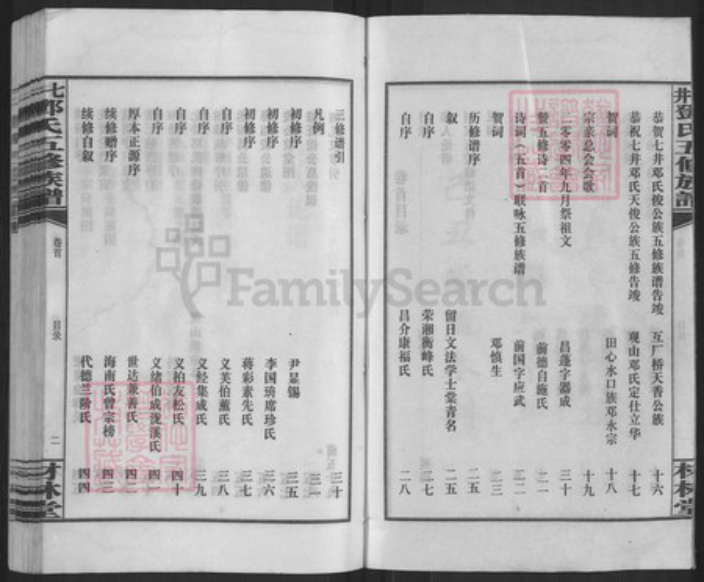 恭贺七井邓氏俊公族五修族谱告竣 互厂桥天香公族 十六
恭祝七井邓氏天俊公族五修告竣 观山邓氏定仕立华 十七
贺词 田心水口族邓永宗 十八
宗亲总会会歌 十九
二零零四年九月祭祖文 昌蓬字器成 三十
赞五修诗二首 前德自勉氏 二一
诗词（五首）联咏五修族谱 前国字应武
贺词 邓慎生 二三
历修谱序 二五
叙 留日文法学士棠青名 二五
自序 荣湘衡峰氏 二七
自序 昌介康福氏 二八
荆邓氏五修族谱
材林堂
七邓氏五修族谱
卷首
目录
二
材林堂
三修谱引 三十
凡例 三一
初修序 尹显锡 三五
初修序 李国琦席珍氏 三六
初修序 蒋彩素先氏 三七
自序 义芙伯薰氏 三八
自序 义经集成氏 三九
自序 义柏友松氏 四十
自序 义绪伯成泷溪氏 四四
厚本正源序 世达兼善氏 四二
续修赠序 海南氏曾宗榜 四三
续修自叙 代德兰阶氏 四四
FamilySearch